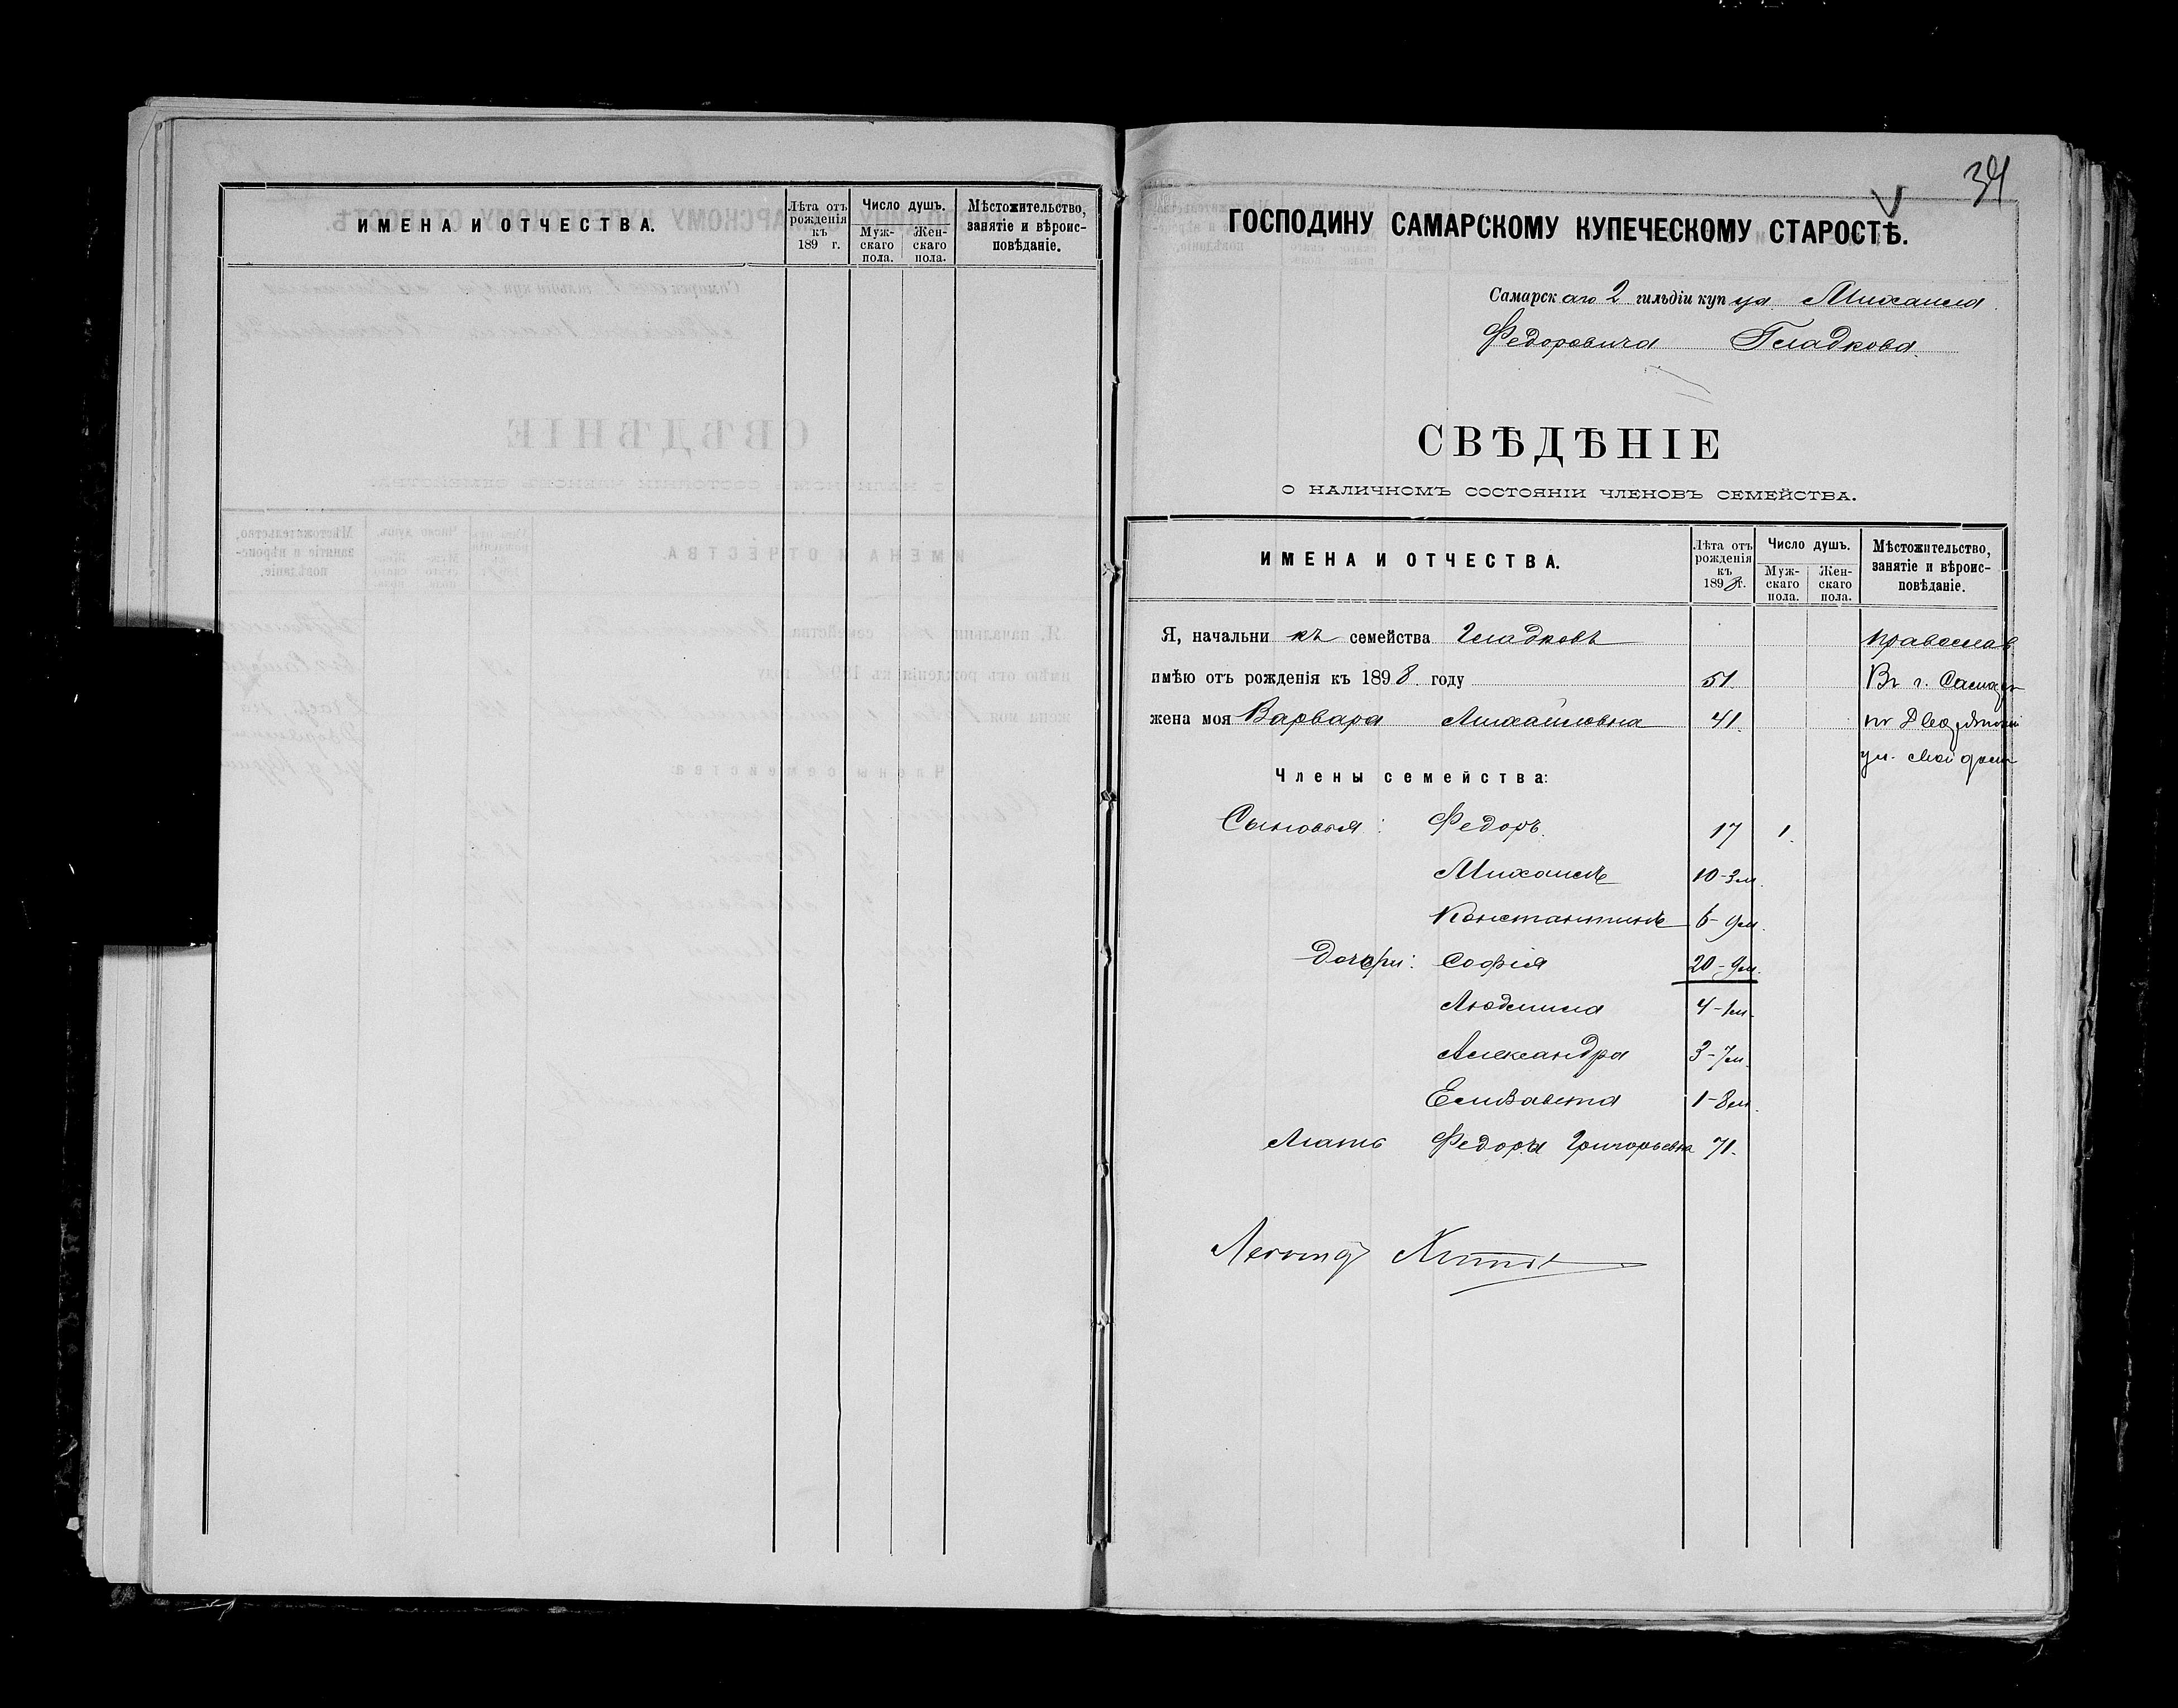 ИМЕНА И ОТЧЕСТВА.
Лѣта отъ рожденія къ 189 г.
Число душъ.
Муж- скаго пола.
Жен- скаго пола.
Мѣстожительство, занятіе и вѣроис- повѣданіе.
34
ГОСПОДИНУ САМАРСКОМУ КУПЕЧЕСКОМУ СТАРОСТѢ.
Самарскаго 2 гильдіи купца Михаила
Федоровича Гладкова.
СВѢДѢНІЕ
О НАЛИЧНОМЪ СОСТОЯНІИ ЧЛЕНОВЪ СЕМЕЙСТВА.
ИМЕНА И ОТЧЕСТВА.
Лѣта отъ рожденія къ 1898 г.
Число душъ.
Муж- скаго пола.
Жен- скаго пола.
Мѣстожительство, занятіе и вѣроис- повѣданіе.
Я, начальникъ семейства Гладковъ православ
имѣю отъ рожденія къ 1898 году 51. Въ г. Самарѣ
жена моя Варвара Михайловна 41. по Дворянской
ул. свой домъ
Члены семейства:
Сыновья: Федоръ. 17 1.
Михаилъ 10-3м.
Константинъ 6-9м.
Дочери: Софія 20-9м.
Людмила 4-1м.
Александра 3-7м.
Елизавета 1-8м.
Мать Федора Григорьевна 71.